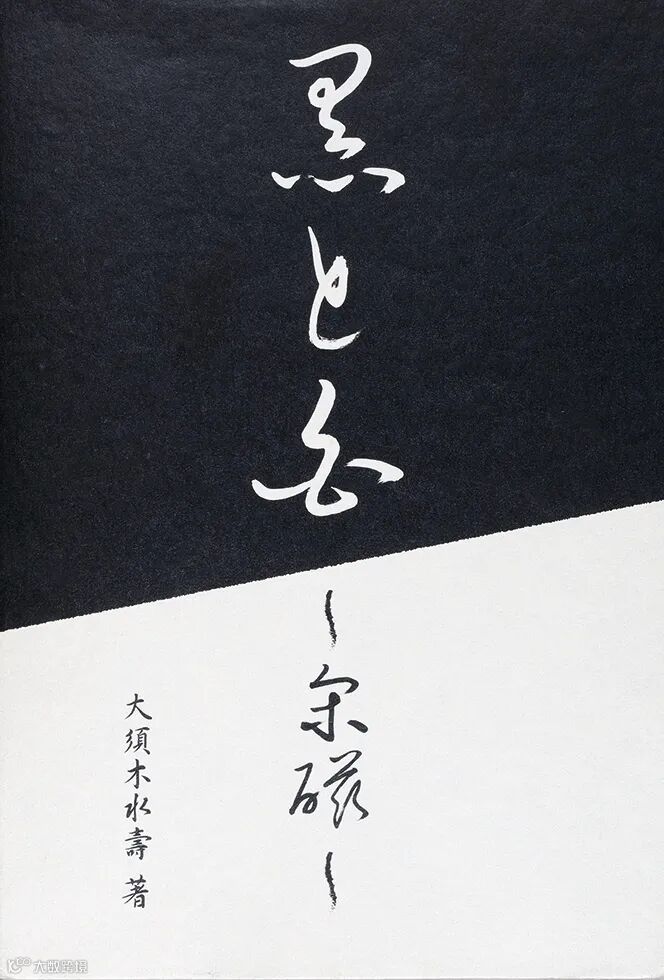 黒と白
—宋磁—
大須木水壽 著
大数跨境